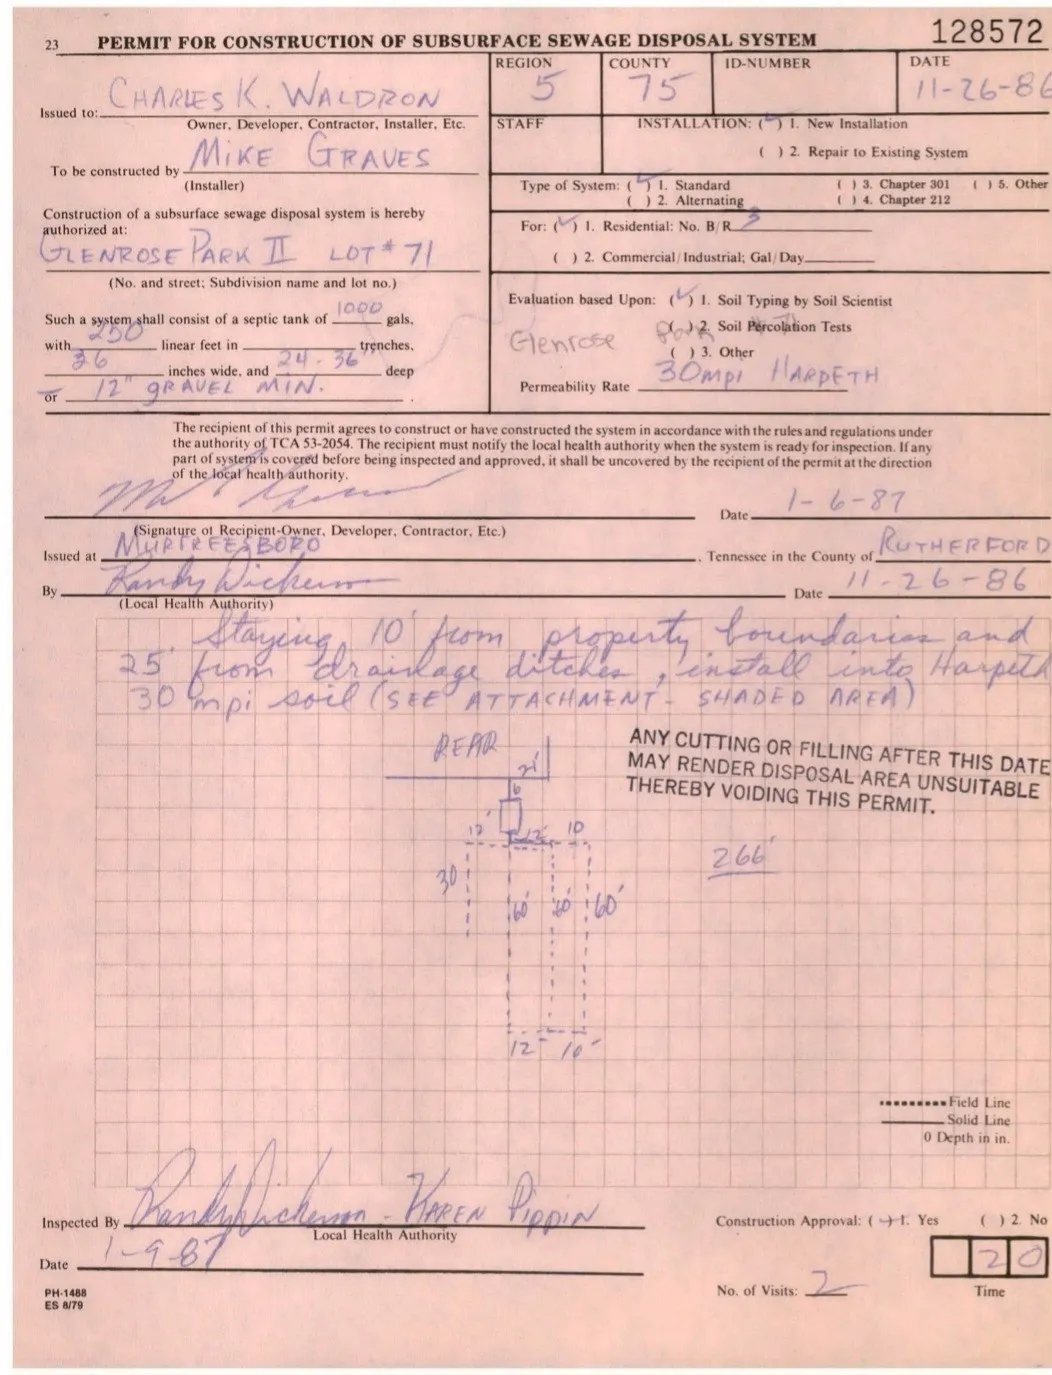 23 PERMIT FOR CONSTRUCTION OF SUBSURFACE SEWAGE DISPOSAL SYSTEM 128572
REGION COUNTY ID-NUMBER DATE
5 75 11-26-86
Issued to: CHARLES K. WALDRON
Owner, Developer, Contractor, Installer, Etc.
STAFF INSTALLATION: (✓) 1. New Installation
( ) 2. Repair to Existing System
To be constructed by MIKE GRAVES
(Installer)
Type of System: (✓) 1. Standard ( ) 3. Chapter 301 ( ) 5. Other
( ) 2. Alternating ( ) 4. Chapter 212
Construction of a subsurface sewage disposal system is hereby
authorized at:
GLENROSE PARK II LOT # 71
(No. and street; Subdivision name and lot no.)
For: (✓) 1. Residential: No. B/R 3
( ) 2. Commercial/Industrial; Gal/Day
Such a system shall consist of a septic tank of 1000 gals,
with 250 linear feet in trenches,
36 inches wide, and 24-36" deep
or 12" GRAVEL MIN.
Evaluation based Upon: (✓) 1. Soil Typing by Soil Scientist
( ) 2. Soil Percolation Tests
Glenrose Park # 71
( ) 3. Other
Permeability Rate 30mpi HARPETH
The recipient of this permit agrees to construct or have constructed the system in accordance with the rules and regulations under
the authority of TCA 53-2054. The recipient must notify the local health authority when the system is ready for inspection. If any
part of system is covered before being inspected and approved, it shall be uncovered by the recipient of the permit at the direction
of the local health authority.
Date 1-6-87
(Signature of Recipient-Owner, Developer, Contractor, Etc.)
Issued at MURFREESBORO, Tennessee in the County of RUTHERFORD
By Randy Dickerson Date 11-26-86
(Local Health Authority)
Staying 10' from property boundaries and
25' from drainage ditches, install into Harpeth
30 mpi soil (SEE ATTACHMENT - SHADED AREA)
REAR
ANY CUTTING OR FILLING AFTER THIS DATE
MAY RENDER DISPOSAL AREA UNSUITABLE
THEREBY VOIDING THIS PERMIT.
21'
6
12' 12' 10
266'
30
60' 60' 60'
12' 10'
Field Line
Solid Line
0 Depth in in.
Inspected By Randy Dickerson - KAREN PIPPIN
Local Health Authority
Construction Approval: (✓) 1. Yes ( ) 2. No
Date 1-9-87
20
No. of Visits: 2 Time
PH-1488
ES 8/79